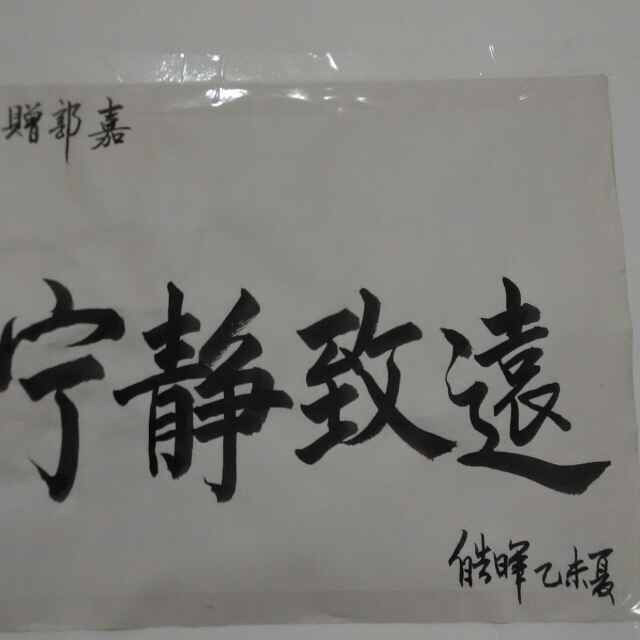 贈郭嘉
宁靜致遠
皓暉乙未夏